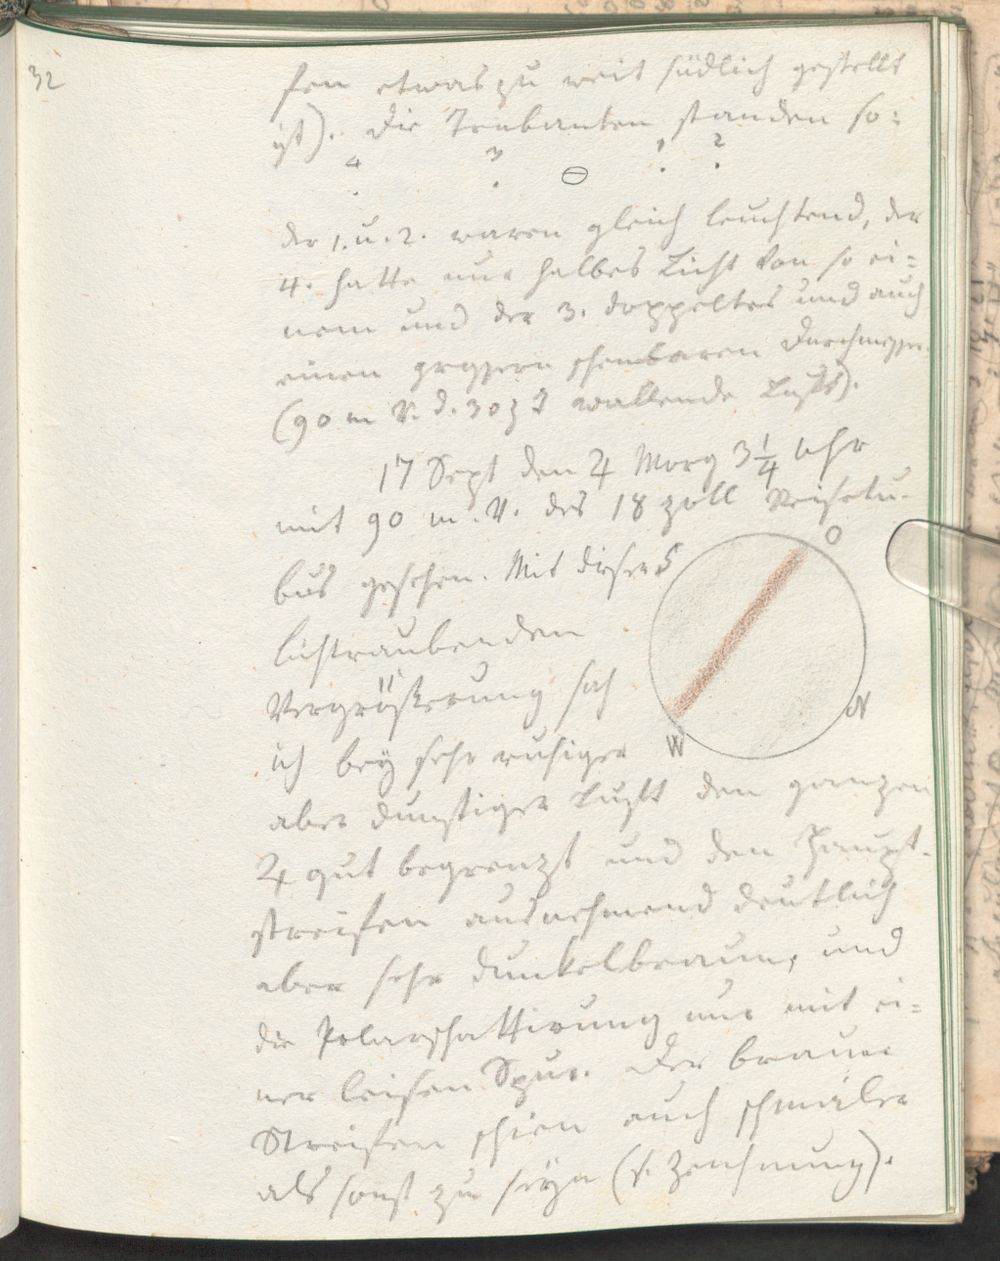 32
fen etwas zu weit südlich gestellt
ist). Die Trabanten standen so:
4 3 1 2
der 1. u. 2. waren gleich leuchtend, der
4. hatte nur halbes Licht von so ei=
nem und der 3. doppeltes und auch
einen grossern schenbaren Durchmesser
(90 m V. d. 30 z wallende Luft).
17 Sept den ♃ Morg 3 1/4 Uhr
mit 90 m. V. des 18 zoll Reisetu-
bus gesehen. Mit dieser
S O
lichtraubenden
Vergrößerung sah
ich bey sehr ruhiger
W N
aber dunstiger Luft den ganzen
♃ gut begrenzt und den Haupt-
streifen ausnehmend deutlich
aber sehr dunkelbraun, und
die Polarschattirung nur mit ei=
ner leisen Spur. Der braune
Streifen schien auch schmäler
als sonst zu seyn (s. Zeichnung).